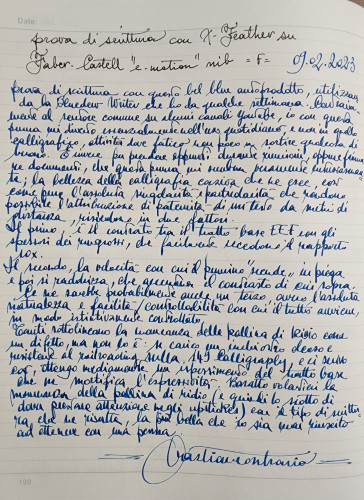 Date:
prova di scrittura con X-Feather su
Faber-Castell "e-motion" nib =F= 09.02.2023
prova di scrittura con questo bel blu autoprodotto, utilizzan
da la Bluedew Writer che ho da qualche settimana.
mente al sentore comune su alcuni canali YouTube, io con questa
punna mi diverto essenzialmente nell'uso quotidiano e non in quello
calligrafico, attività dove fatico non poco in sortire qualcosa di
buono. E invece per prendere appunti durante riunioni, oppure firma
re documenti, che questa punna mi sembra veramente imbattibile
te; la bellezza della calligrafia corsiva che ne esce, così
come pure l'assoluta singolarità contraddetta che rendono
possibile l'attribuzione di paternità di un testo da metri di
distanza, risiedono in due fattori.
Il primo, è il contrasto tra il tratto base EEF con gli
spessori dei ringrossi, che facilmente eccedono il rapporto
10x.
Il secondo, la velocità con cui il pennino "scende" in piega
e poi si raddrizza, che generano il contrasto di cui sopra.
Ce ne sarebbe probabilmente anche un terzo, ovvero l'assoluta
naturalezza e facilità/controllabilità con cui il tutto avviene,
in modo istintivamente controllato.
Tutti sottolineano la mancanza della pallina di iridio come
un difetto, ma non lo è: si carica un inchiostro denso e
resistente al railroading sulla 149 Calligraphy e si scrive
così, ottengo mediamente un ispessimento del tratto base
che ne mortifica l'espressività. Baratto volentieri la
mancanza della pallina di iridio (e quindi lo scotto di
dover prestare attenzione negli upstrokes) con il tipo di scrittu
ra che ne risulta, la più bella che io sia mai riuscito
ad ottenere con una penna.
198